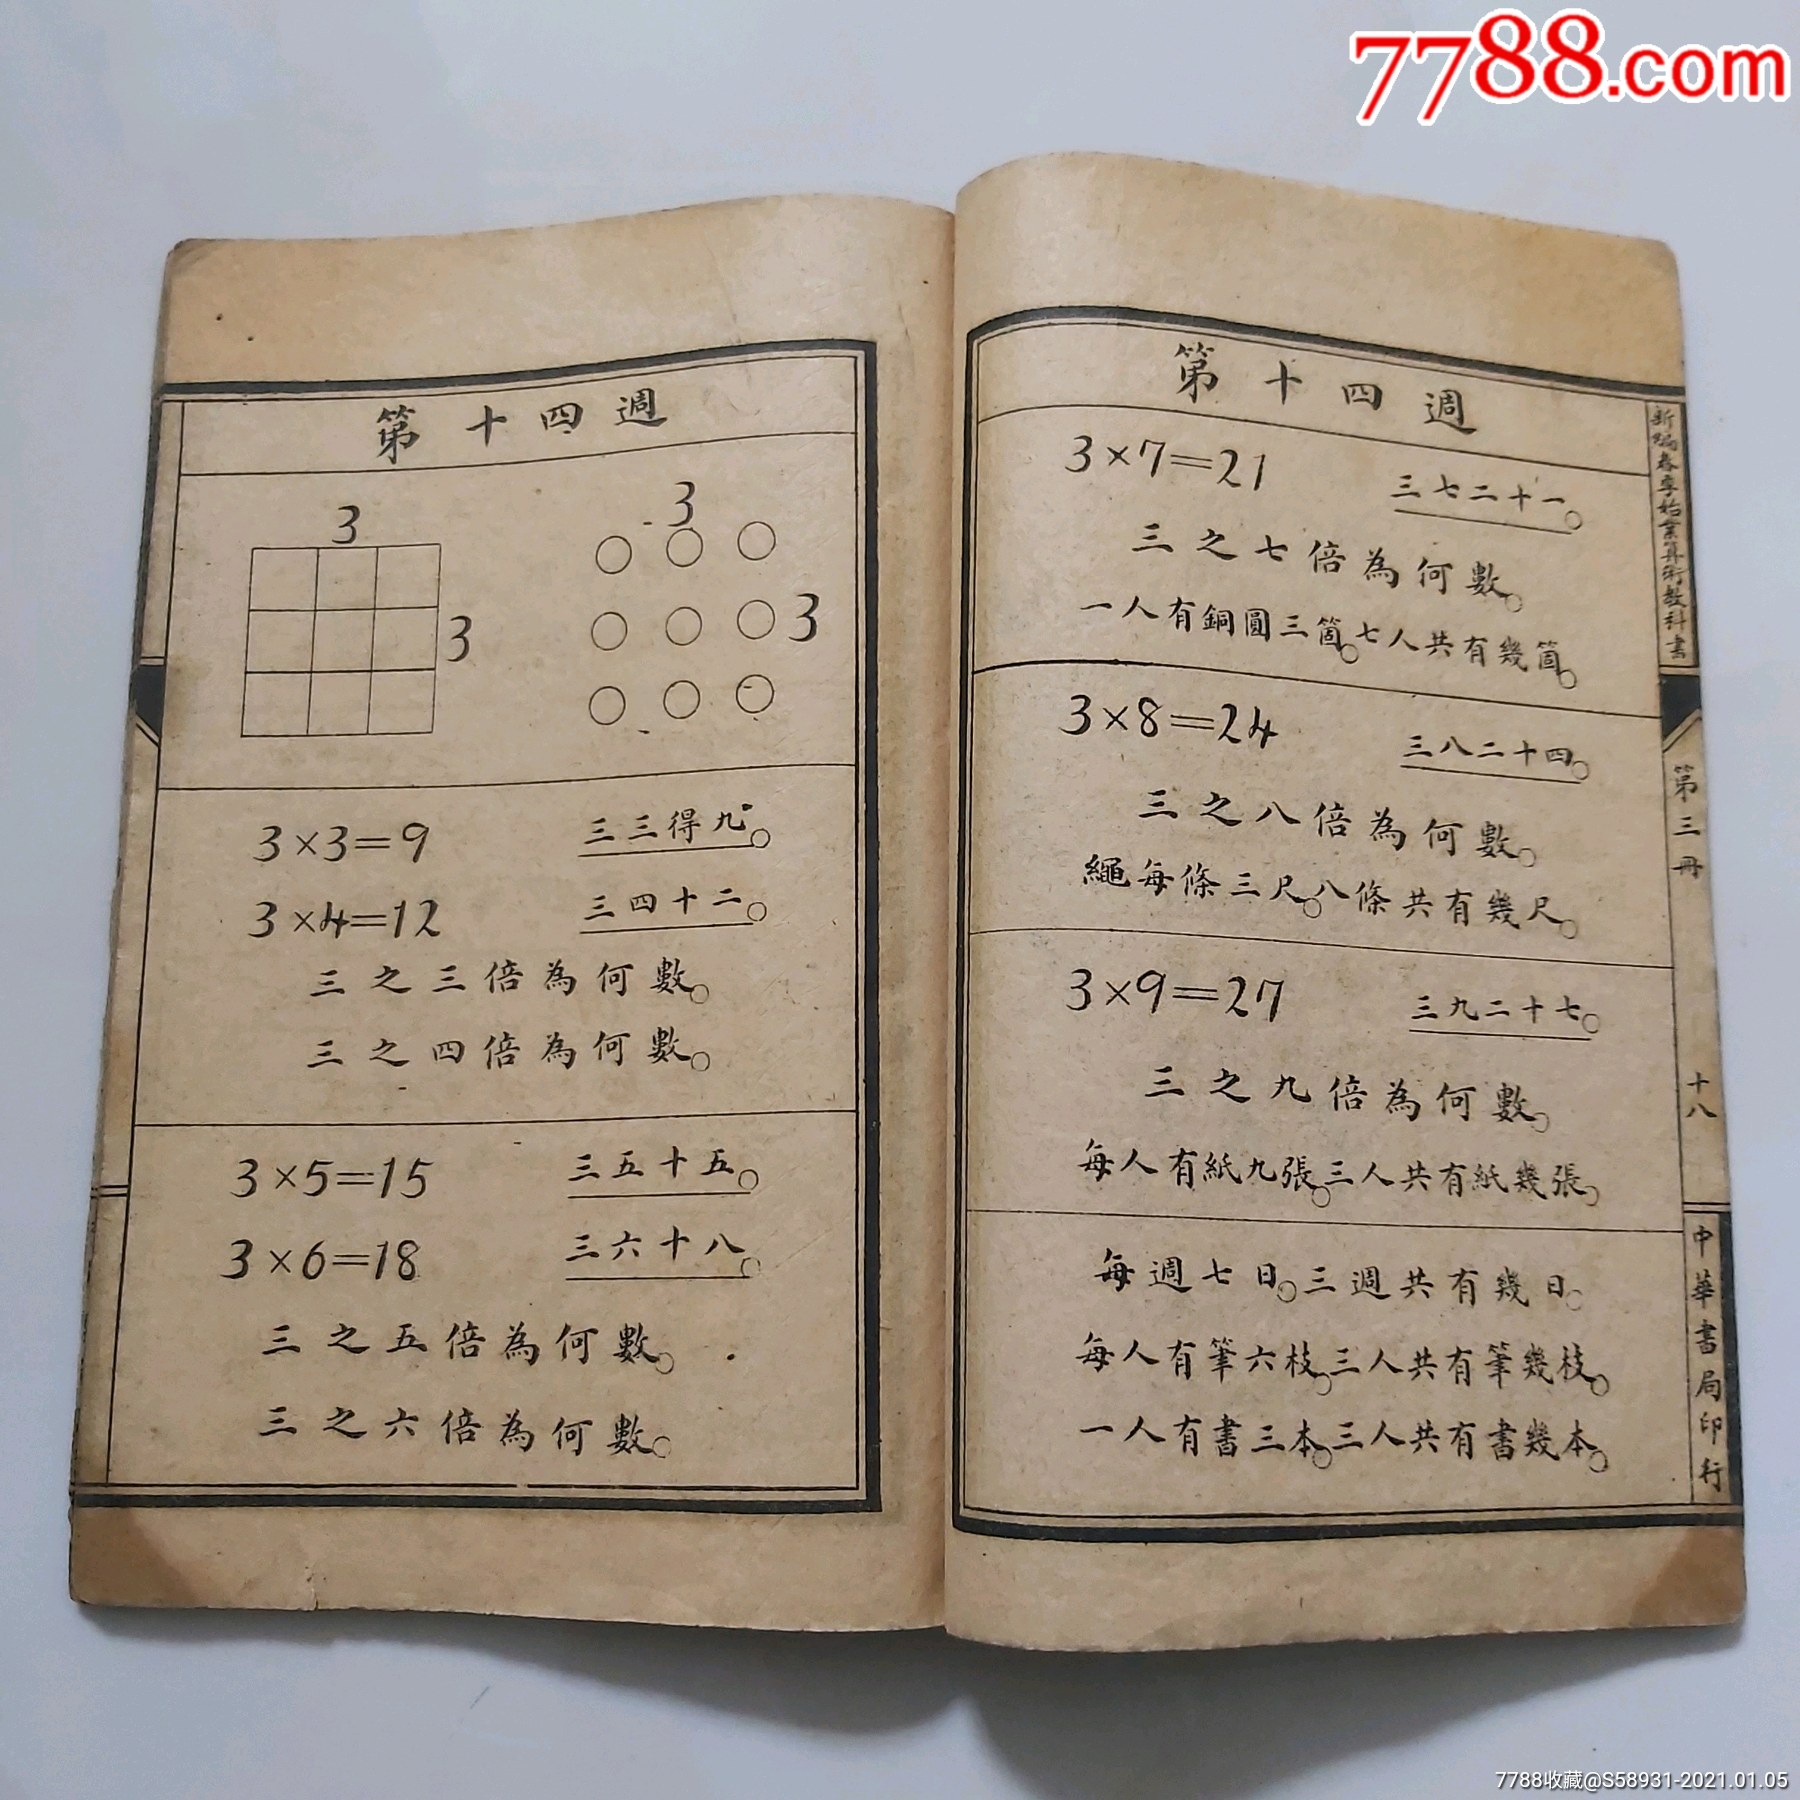 7788.com
第十四週
3
3
3
3
3×3=9 三三得九。
3×4=12 三四十二。
三之三倍為何數。
三之四倍為何數。
3×5=15 三五十五。
3×6=18 三六十八。
三之五倍為何數。
三之六倍為何數。
第十四週
3×7=21 三七二十一。
三之七倍為何數。
一人有銅圓三箇。七人共有幾箇。
3×8=24 三八二十四。
三之八倍為何數。
繩每條三尺。八條共有幾尺。
3×9=27 三九二十七。
三之九倍為何數。
每人有紙九張。三人共有紙幾張。
每週七日。三週共有幾日。
每人有筆六枝。三人共有筆幾枝。
一人有書三本。三人共有書幾本。
新編春季始業算術教科書
第三冊
十八
中華書局印行
7788收藏@S58931-2021.01.05